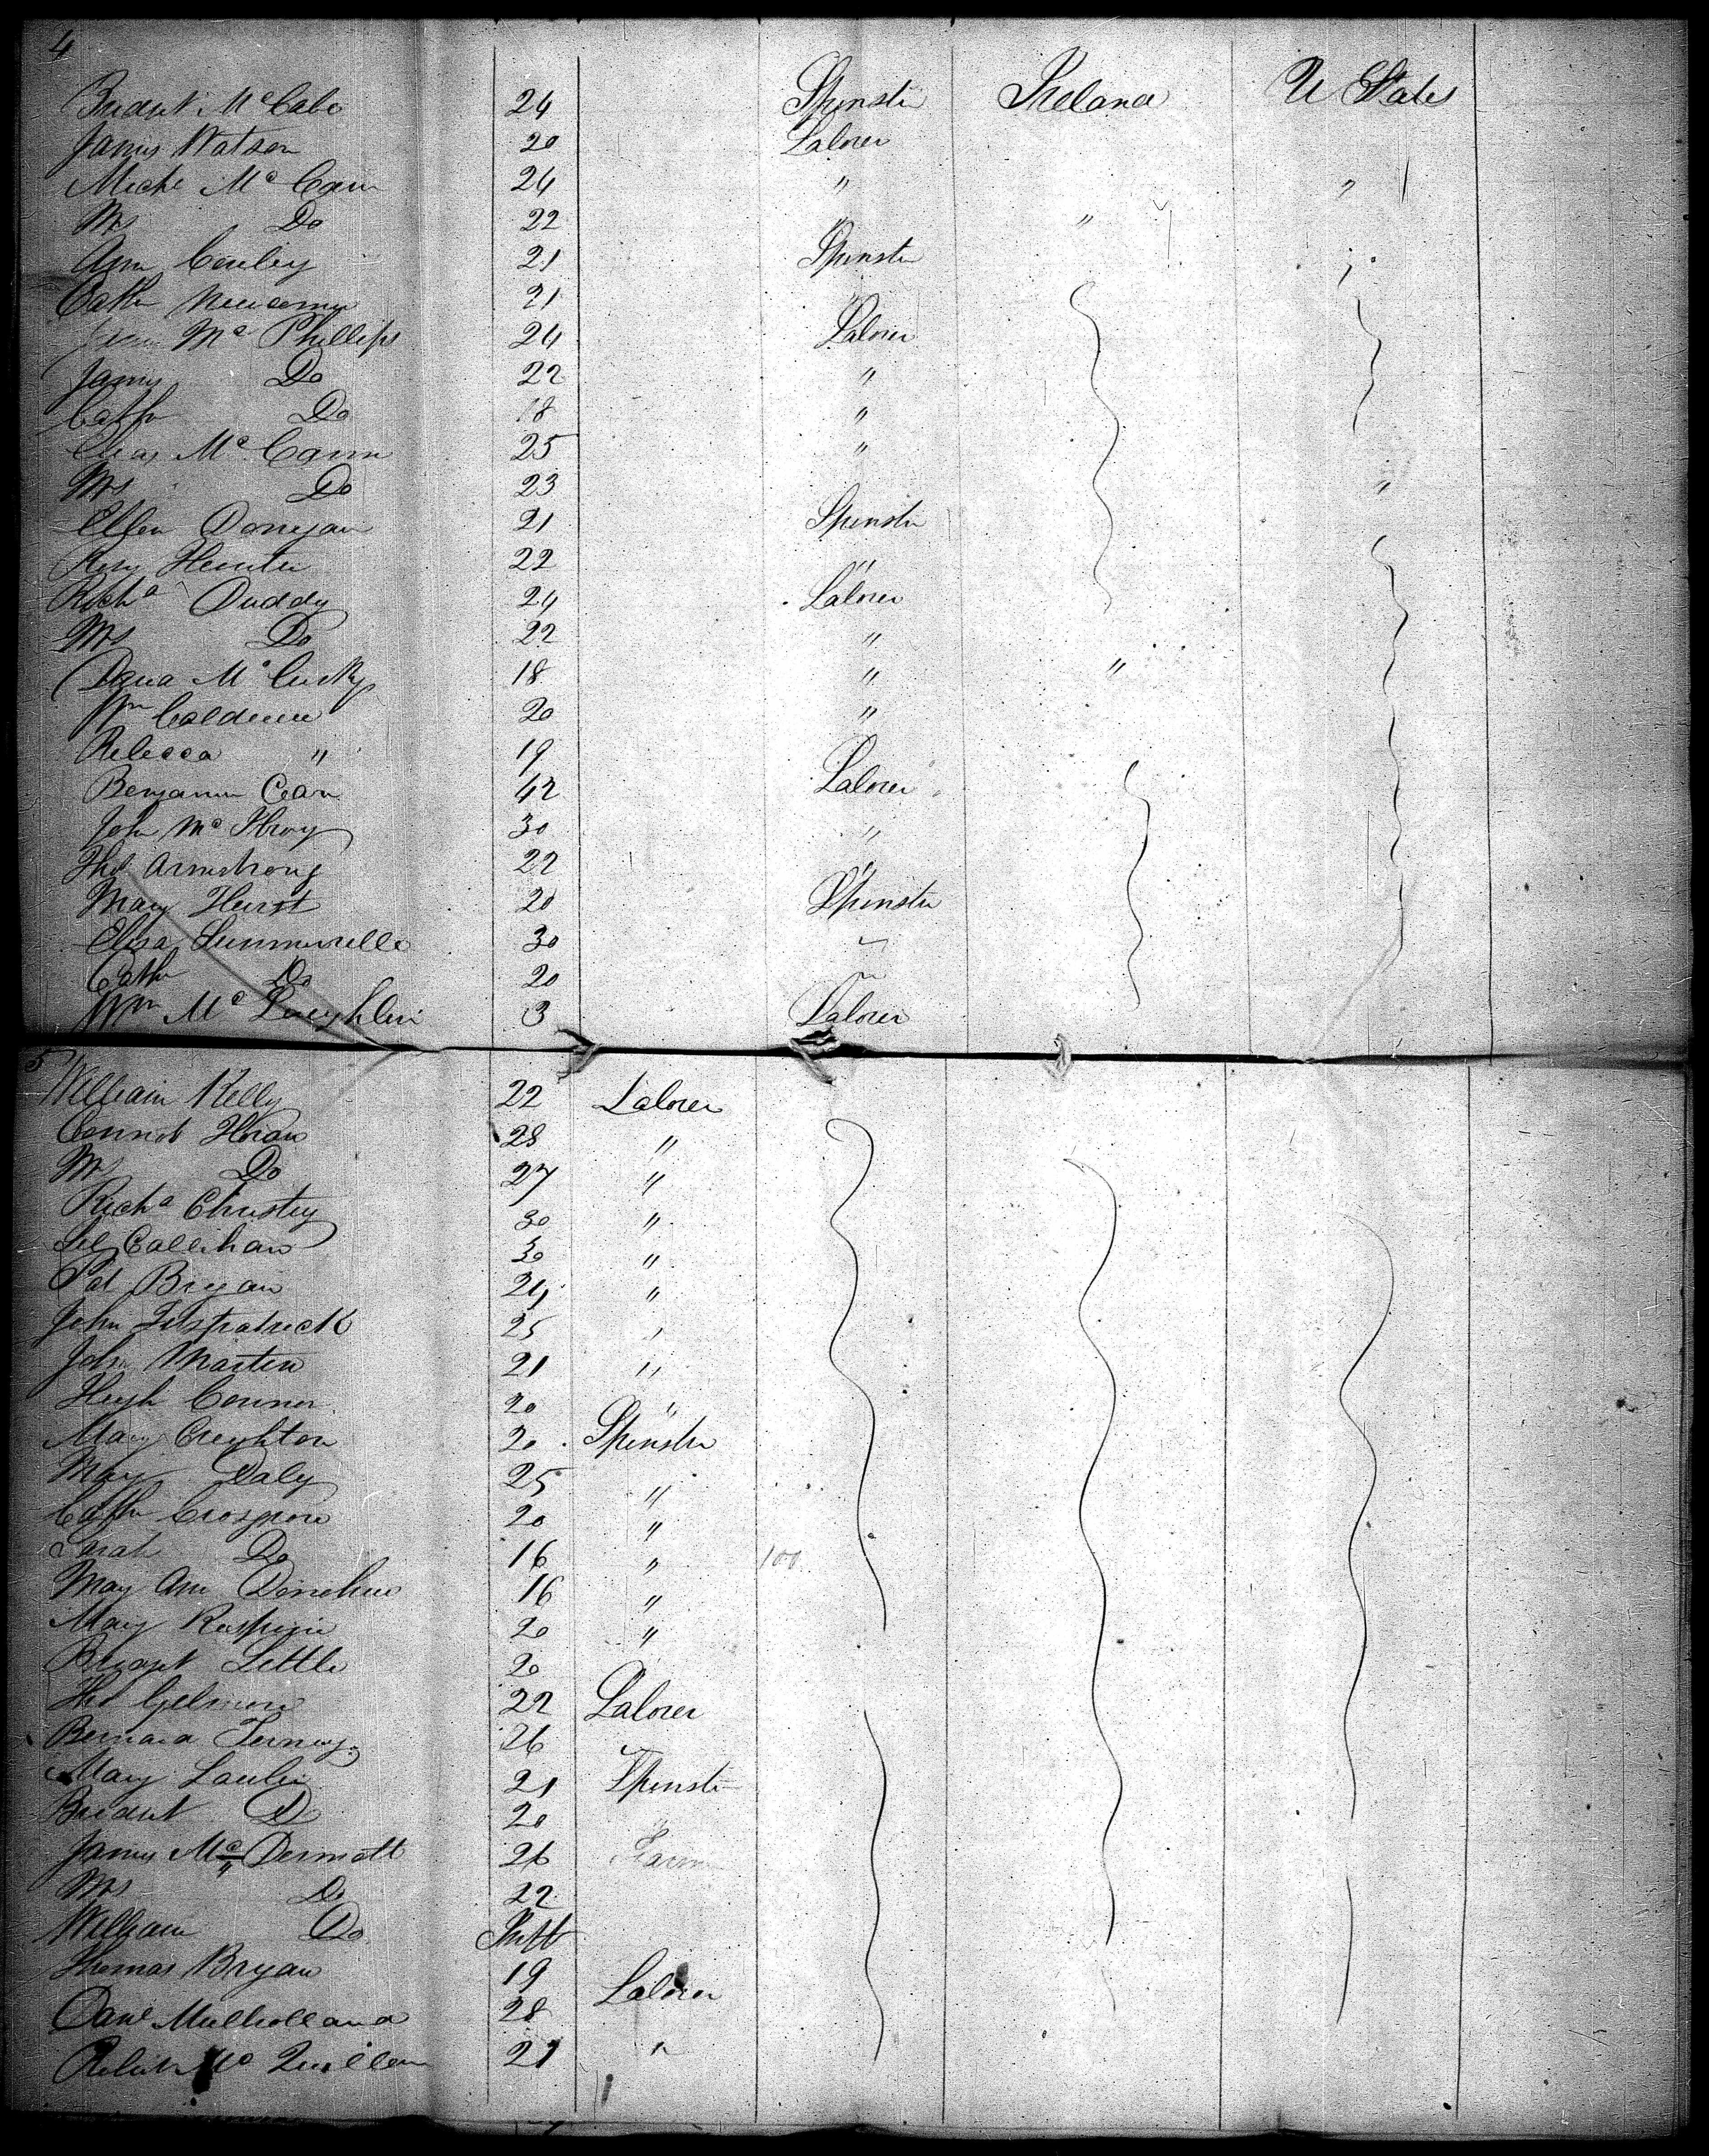 4
Bridget McCabe 24 Spinster Ireland U States
James Watson 20 Laborer
Michl McCann 24 " "
Mrs Do 22 " "
Ann Conley 21 Spinster "
Cath 21 "
McPhillips 24 Laborer
James Do 22 "
Cath Do 18 "
Chas McCann 25 "
Mrs Do 23 "
Ellen Donegan 21 Spinster
Rosy Hunter 22 "
Richd Duddy 24 Laborer
Mrs Do 22 "
McCusky 18 " "
Wm 20 "
Rebecca " 19
Benjamin 42 Laborer
John McIlroy 30 "
Thos Armstrong 22 "
Mary Hurst 20 Spinster
Eliza Summerelle 30 "
Cath Do 20 "
Wm McLaughlin 3 Laborer
5
William Kelly 22 Laborer
28 "
Mrs Do 27 "
Richd Christy 30 "
Callihan 30 "
Pat Bryan 24 "
John Fitspatrick 25 "
John Martin 21 "
Hugh Connor 20 "
Mary Creighton 20 Spinster
Mary Daly 25 "
Cath Crosgrove 20 "
Sarah Do 16 " 100
Mary Ann Donehue 16 "
Mary 20 "
Bridget Little 20 "
Thos Gelmore 22 Laborer
Bernard 26 "
Mary 21 Spinster
Bridget Do 20 "
James McDermott 26 Farm
Mrs Do 22
William Do Inft
Thomas Bryan 19 Laborer
Danl Mulholland 28
McQuillan 21 "